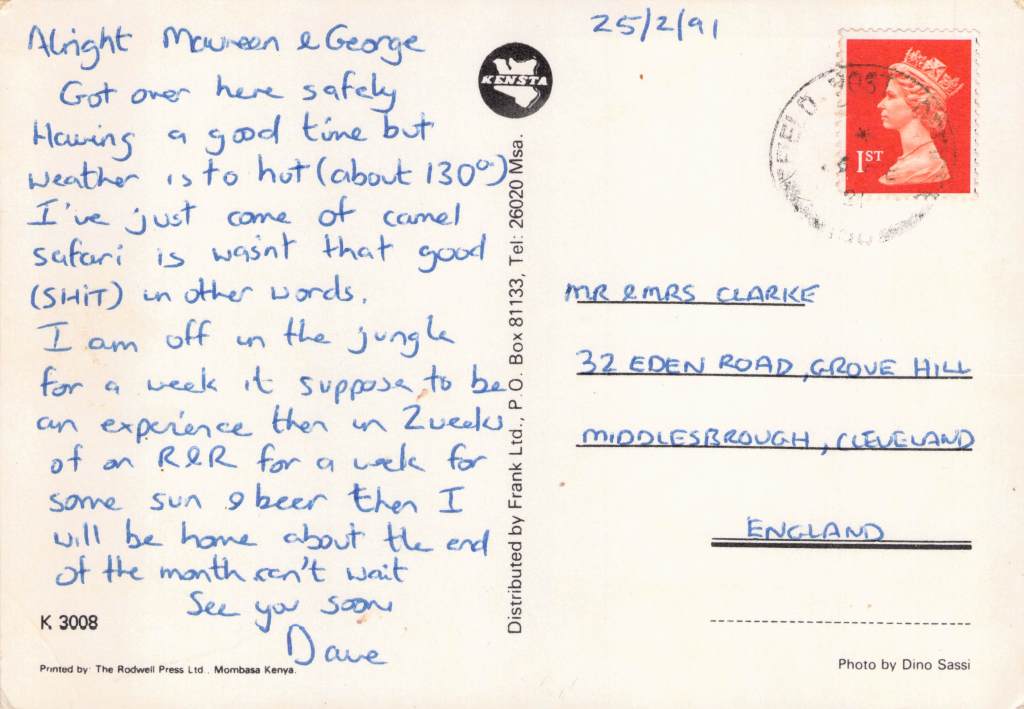 Alright Maureen & George
Got over here safely
Having a good time but
weather is to hot (about 130º)
I've just come of camel
safari is wasn't that good
(SHIT) in other words.
I am off in the jungle
for a week it suppose to be
an experience then in 2 weeks
of on R&R for a week for
some sun & beer then I
will be home about the end
of the month can't wait
See you soon
Dave
K 3008
Printed by: The Rodwell Press Ltd., Mombasa Kenya.
KENSTA
Distributed by Frank Ltd., P.O. Box 81133, Tel: 26020 Msa.
25/2/91
1ST
FIELD POST
MR & MRS CLARKE
32 EDEN ROAD, GROVE HILL
MIDDLESBROUGH, CLEVELAND
ENGLAND
Photo by Dino Sassi